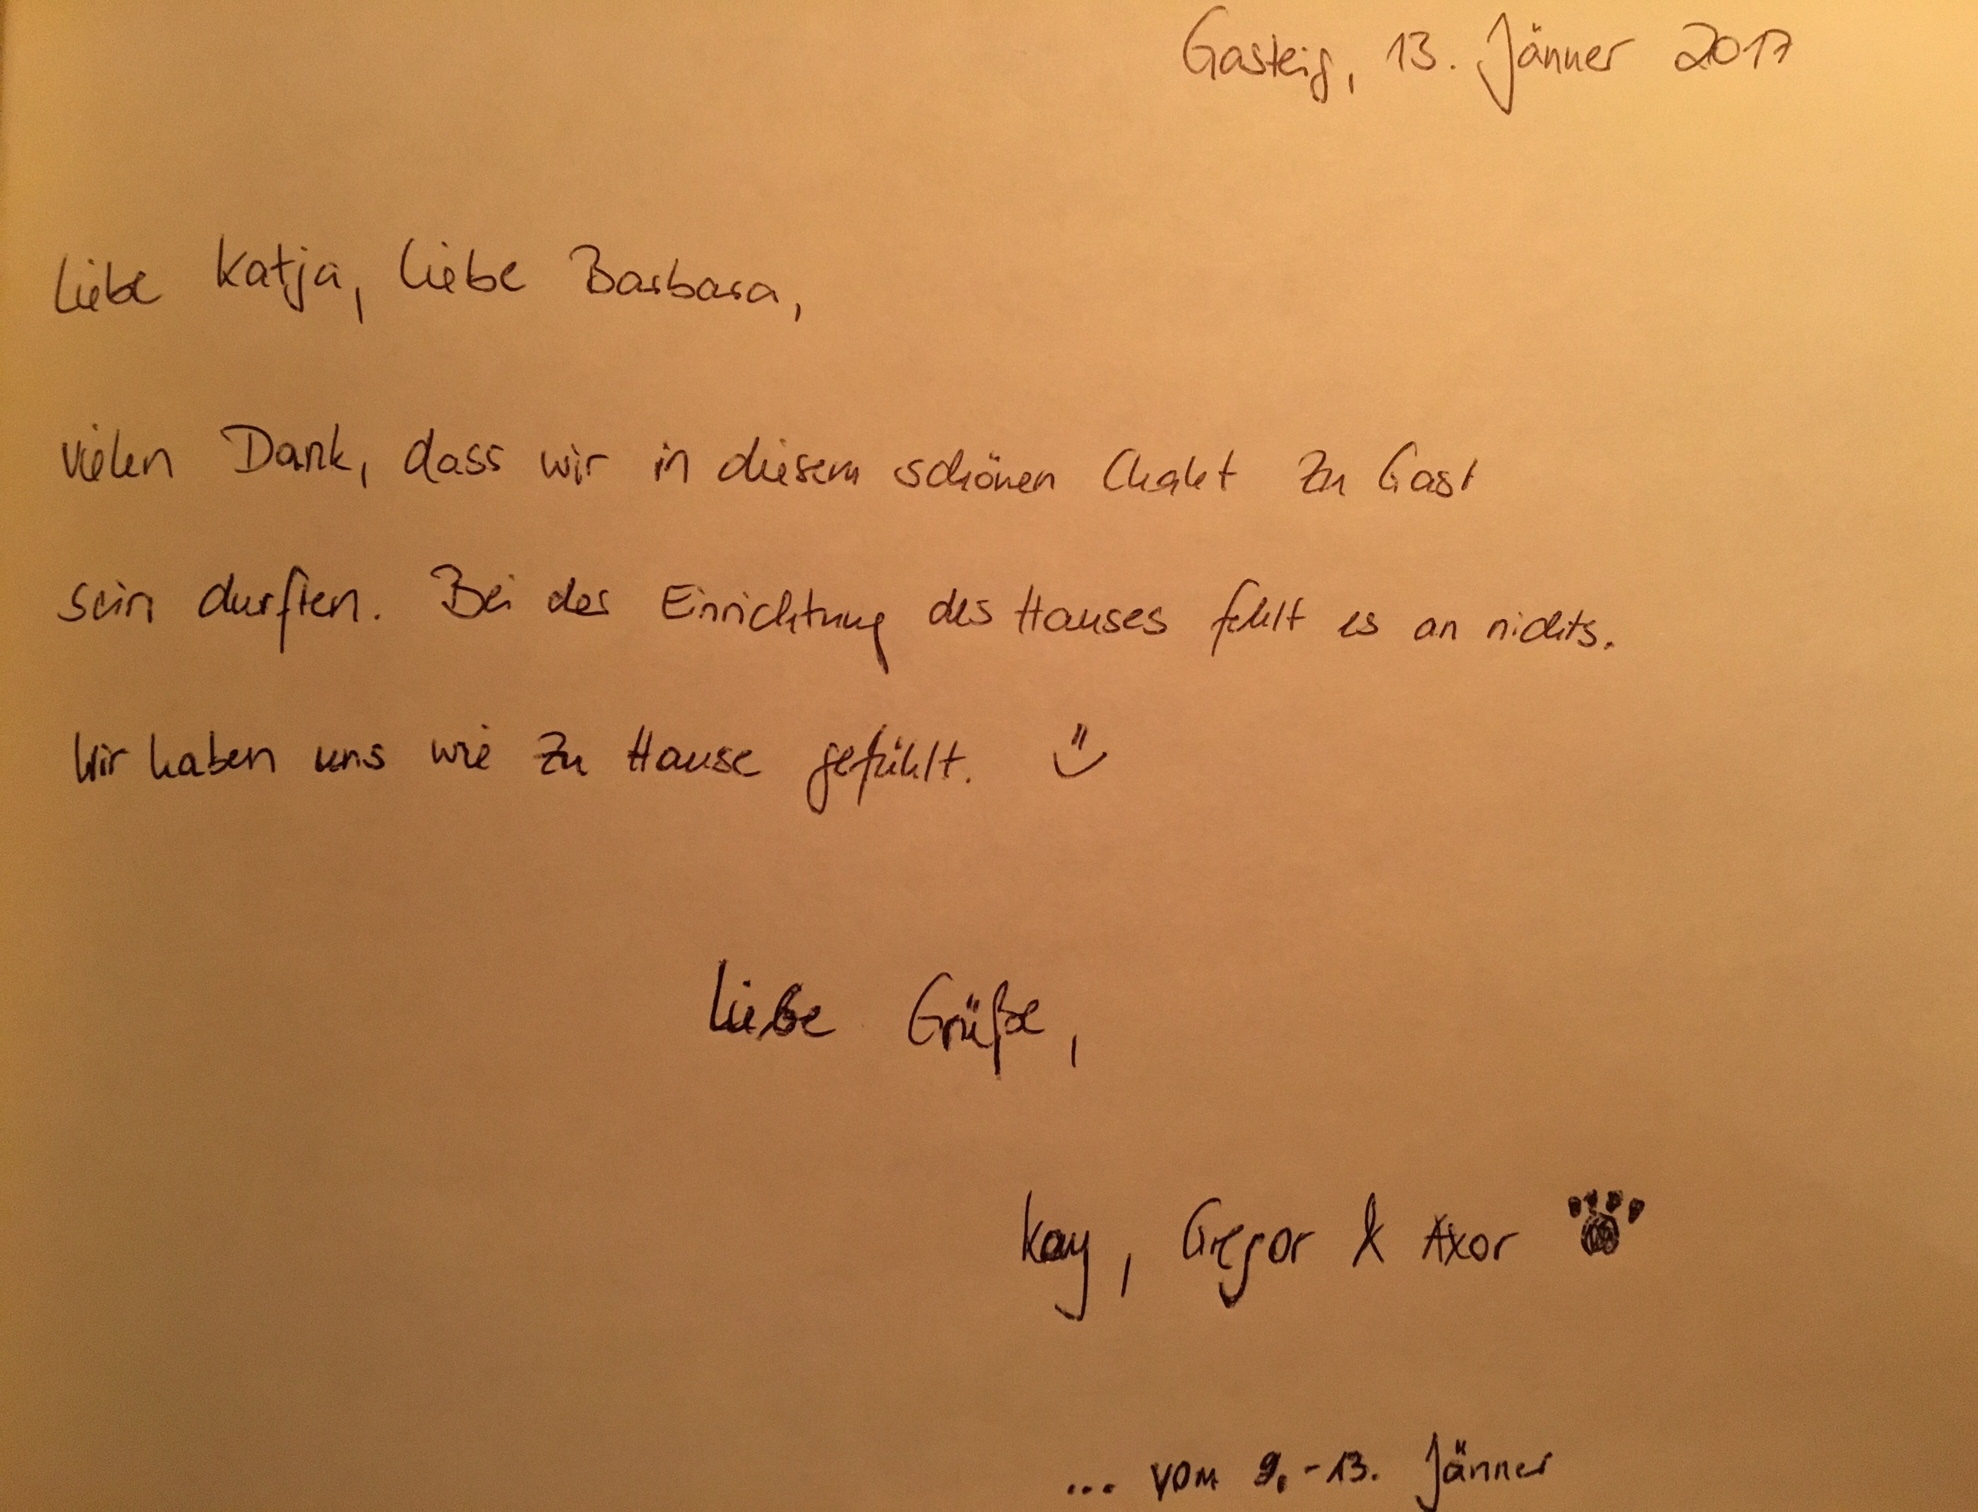 Gasteig, 13. Jänner 2017
Liebe Katja, liebe Barbara,
vielen Dank, dass wir in diesem schönen Chalet zu Gast
sein durften. Bei der Einrichtung des Hauses fehlt es an nichts.
Wir haben uns wie zu Hause gefühlt. :)
Liebe Grüße,
Kay, Gregor & Axor
... vom 9.-13. Jänner